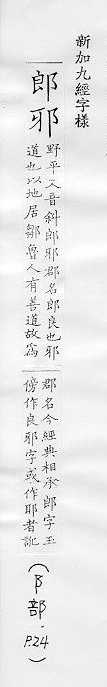 新加九經字樣
郎邪
野平又音斜郎邪郡名郎良也邪
道也以地居鄒魯人有善道故為
郡名今經典相承郎字玉
傍作良邪字或作耶者訛
(阝部·P.24)